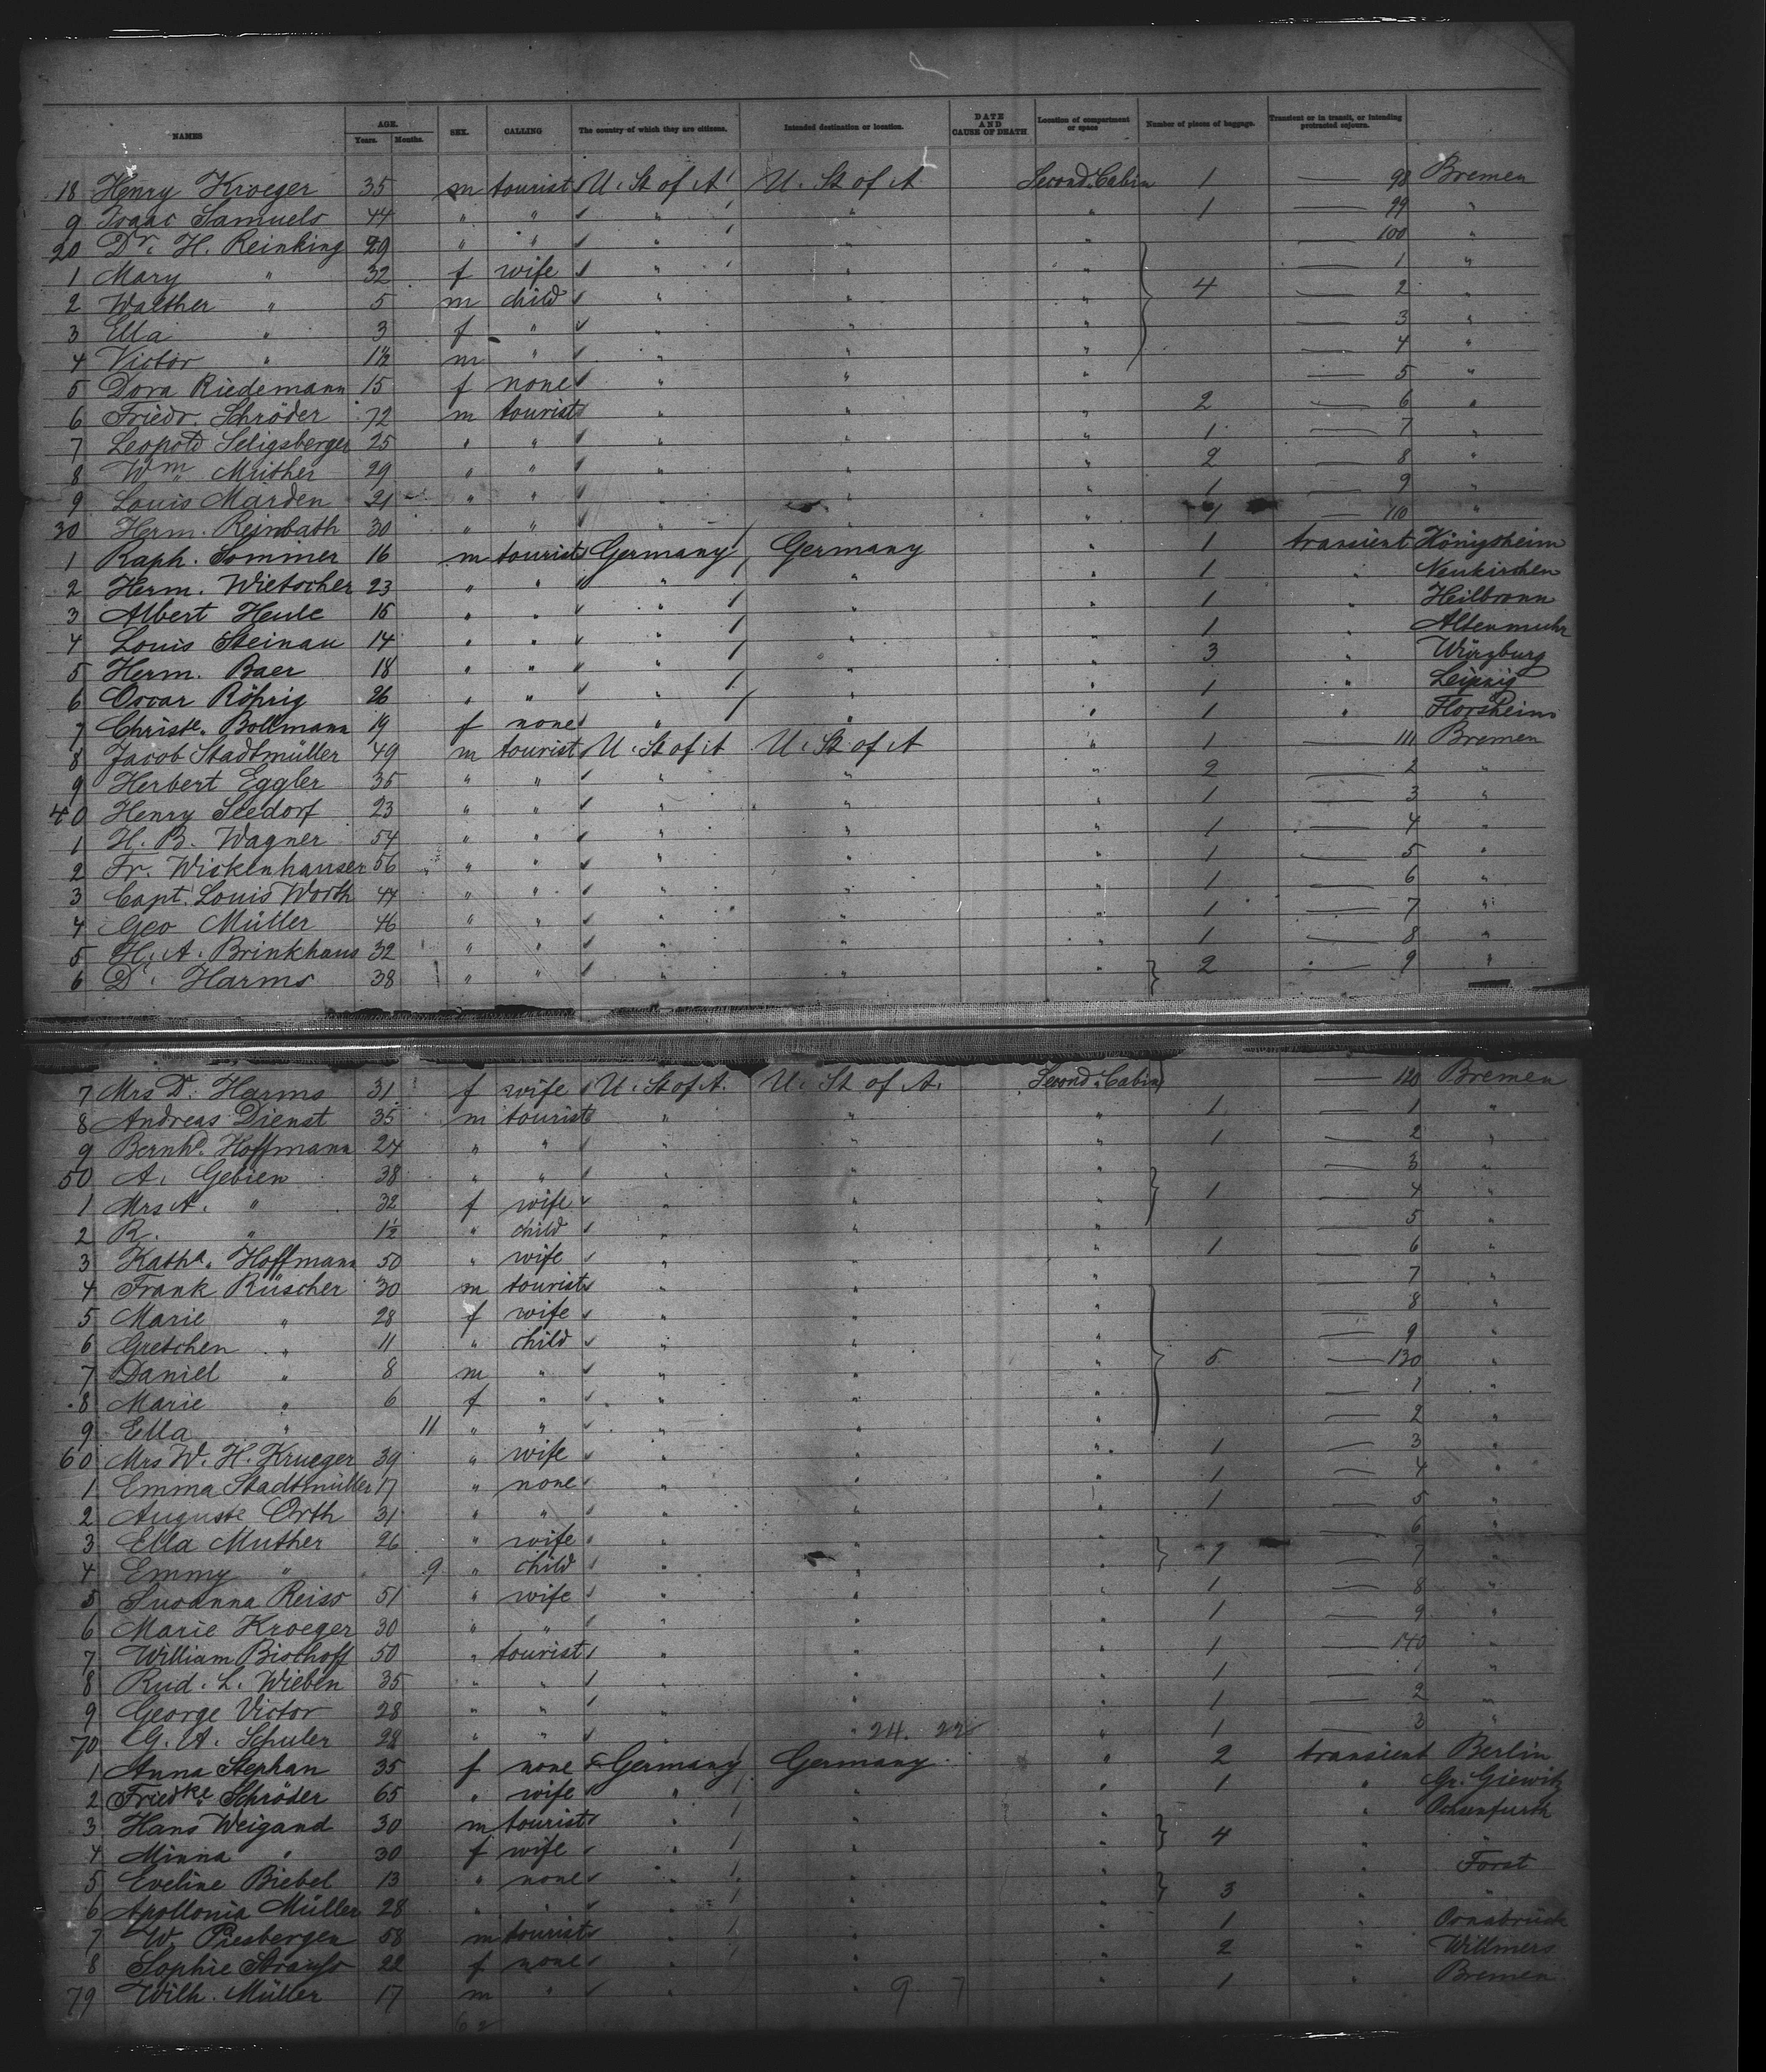 NAMES AGE. Years. Months. SEX. CALLING The country of which they are citizens. Intended destination or location. DATE AND CAUSE OF DEATH Location of compartment or space Number of pieces of baggage. Transient or in transit, or intending protracted sojourn.
18 Henry Kroeger 35 m tourist U. St of A U. St of A Second Cabin 1 — 98 Bremen
9 Isaac Samuels 44 " " " " " 1 — 99 "
20 Dr. H. Reinking 29 " " " " " — 100 "
1 Mary " 32 f wife " " " — 1 "
2 Walther " 5 m child " " " 4 — 2 "
3 Ella " 3 f " " " " — 3 "
4 Victor " 1½ m " " " " — 4 "
5 Dora Riedemann 15 f none " " " — 5 "
6 Friedr. Schröder 72 m tourist " " " 2 — 6 "
7 Leopold Seligsberger 25 " " " " " 1 — 7 "
8 Wm. 29 " " " " " 2 — 8 "
9 Louis Marden 21 " " " " " 1 — 9 "
30 Herm. Reinbath 30 " " " " " 1 — 110 "
1 Raph. Sommer 16 m tourist Germany Germany " 1 transient Königsheim
2 Herm. Wietscher 23 " " " " " 1 " Neukirchen
3 Albert Heule 16 " " " " " 1 " Heilbronn
4 Louis Steinau 14 " " " " " 1 " Altenmuhr
5 Herm. Baer 18 " " " " " 3 " Würzburg
6 Oscar Röhrig 26 " " " " " 1 " Leipzig
7 Christe. Bollmann 19 f none " " " 1 " Florsheim
8 Jacob Stadtmüller 49 m tourist U. St of A U. St of A " 1 — 111 Bremen
9 Herbert Eggler 35 " " " " " 2 — 2 "
40 Henry Seedorf 23 " " " " " 1 — 3 "
1 H. B. Wagner 54 " " " " " 1 — 4 "
2 Fr. Wickenhauser 56 " " " " " 1 — 5 "
3 Capt. Louis Worth 44 " " " " " 1 — 6 "
4 Geo Müller 46 " " " " " 1 — 7 "
5 H. A. Brinkhaus 32 " " " " " 1 — 8 "
6 D. Harms 38 " " " " " 2 — 9 "
7 Mrs D. Harms 31 f wife U. St of A. U. St of A. Second Cabin — 120 Bremen
8 Andreas Dienst 35 m tourist " " " 1 — 1 "
9 Bernhd. Hoffmann 24 " " " " " 1 — 2 "
50 A. Gebien 38 " " " " " — 3 "
1 Mrs A. " 32 f wife " " " 1 — 4 "
2 R. " 1½ " child " " " — 5 "
3 Katha. Hoffmann 50 " wife " " " 1 — 6 "
4 Frank Rüscher 30 m tourist " " " — 7 "
5 Marie " 28 f wife " " " — 8 "
6 Gretchen " 11 " child " " " — 9 "
7 Daniel " 8 m " " " " 5 — 130 "
8 Marie " 6 f " " " " — 1 "
9 Ella " 11 " " " " " — 2 "
60 Mrs W. H. Krueger 39 " wife " " " 1 — 3 "
1 Emma Stadtmüller 17 " none " " " 1 — 4 "
2 Auguste Orth 31 " " " " " 1 — 5 "
3 Ella Muther 26 " wife " " " — 6 "
4 Emmy " 9 " child " " " 1 — 7 "
5 Susanna Reiss 51 " wife " " " 1 — 8 "
6 Marie Kroeger 30 " " " " " 1 — 9 "
7 William Bischoff 50 " tourist " " " 1 — 140 "
8 Rud. L. Wieben 35 " " " " " 1 — 1 "
9 George Victor 28 " " " " " 1 — 2 "
70 G. A. Schuler 28 " " " " 24. 22 " 1 — 3 "
1 Anna Stephan 35 f none Germany Germany " 2 transient Berlin
2 Friedke. Schröder 65 " wife " " " 1 " Gr. Giewitz
3 Hans Weigand 30 m tourist " " " " Ochsenfurth
4 Minna " 30 f wife " " " 4 " "
5 Eveline Biebel 13 " none " " " " Forst
6 Apollonia Müller 28 " " " " " 3 " "
7 W. Piesbergen 58 m tourist " " " 1 " Osnabrück
8 Sophie Strauss 22 f none " " " 2 " Willmers
79 Wilh. Müller 17 m " " " 9 7 " 1 " Bremen